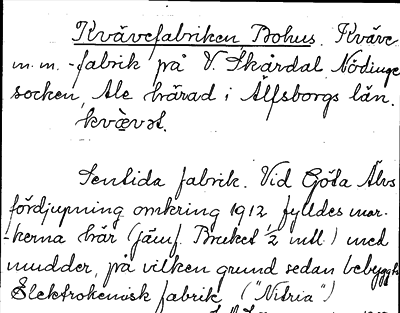 Kvävefabriken Bohus. Kväve
m.m. -fabrik på V. Skårdal Nödinge
socken, Ale härad i Älfsborgs län.
kvæ̀vət.
Sentida fabrik. Vid Göta Älvs
fördjupning omkring 1912 fylldes mar-
-kerna här (jämf. Bruket 2 mtl.) med
mudder, på vilken grund sedan bebyggts
Elektrokemisk fabrik ("Nitria")